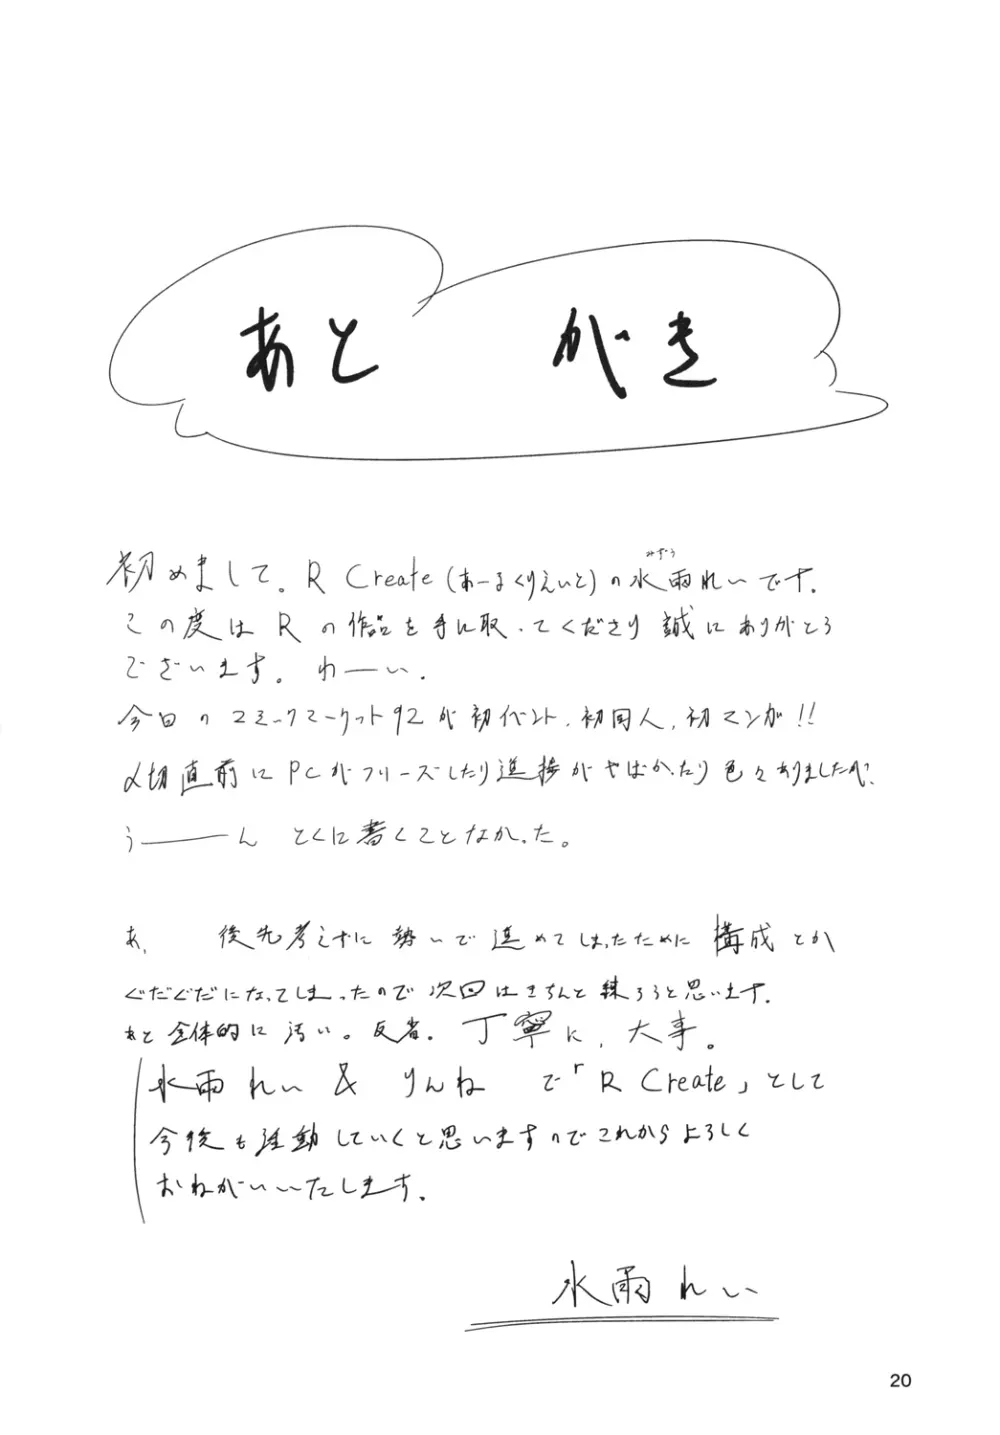 あとがき
みずう
初めまして。R Create(あーるくりえいと)の水雨れいです.
この度はRの作品を手に取ってくださり誠にありがとう
ございます。わーい.
今回のコミックマーケット92が初イベント、初同人、初マンガ!!
〆切直前にPCがフリーズしたり進捗がやばかったり色々ありましたが、
うーーん とくに書くことなかった。
あ、 後先考えずに勢いで進めてしまったために構成とか
ぐだぐだになってしまったので次回はきちんと練ろうと思います.
あと全体的に汚い。反省. 丁寧に、大事。
水雨れい & りんね で「R Create」として
今後も活動していくと思いますのでこれからよろしく
おねがいいたします.
水雨れい
20